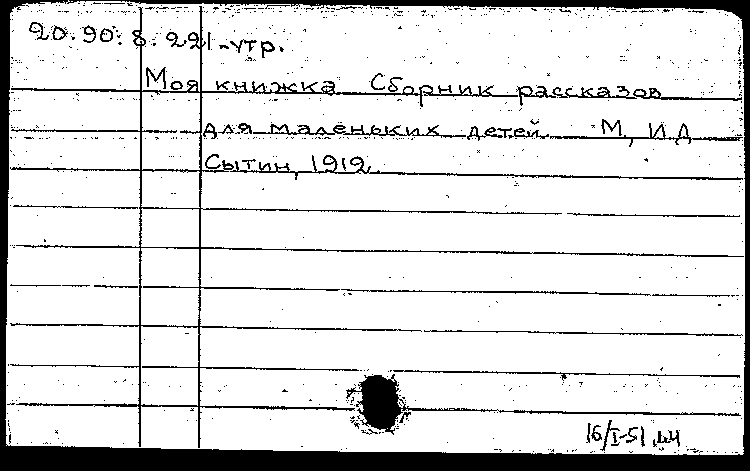 20.90.8.221-утр.
Моя книжка Сборник рассказов
для маленьких детей М, И Д
Сытин, 1912.
16/I-51